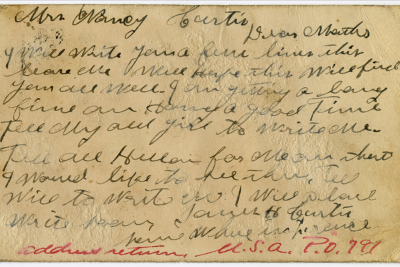 Mrs Nancy Curtis
Dear Mother
I Will Write you a few lines this
leave me Well Hope this Will find
you all Well. I am getting a long
fine an Having a good Time
Tell My old girl to Write Me.
Tell all Hello for Me an that
I Would like to see them, Tell
Will to Write
Write soon, James H Curtis
some Where in France
address return, U.S.A. P.O. 791